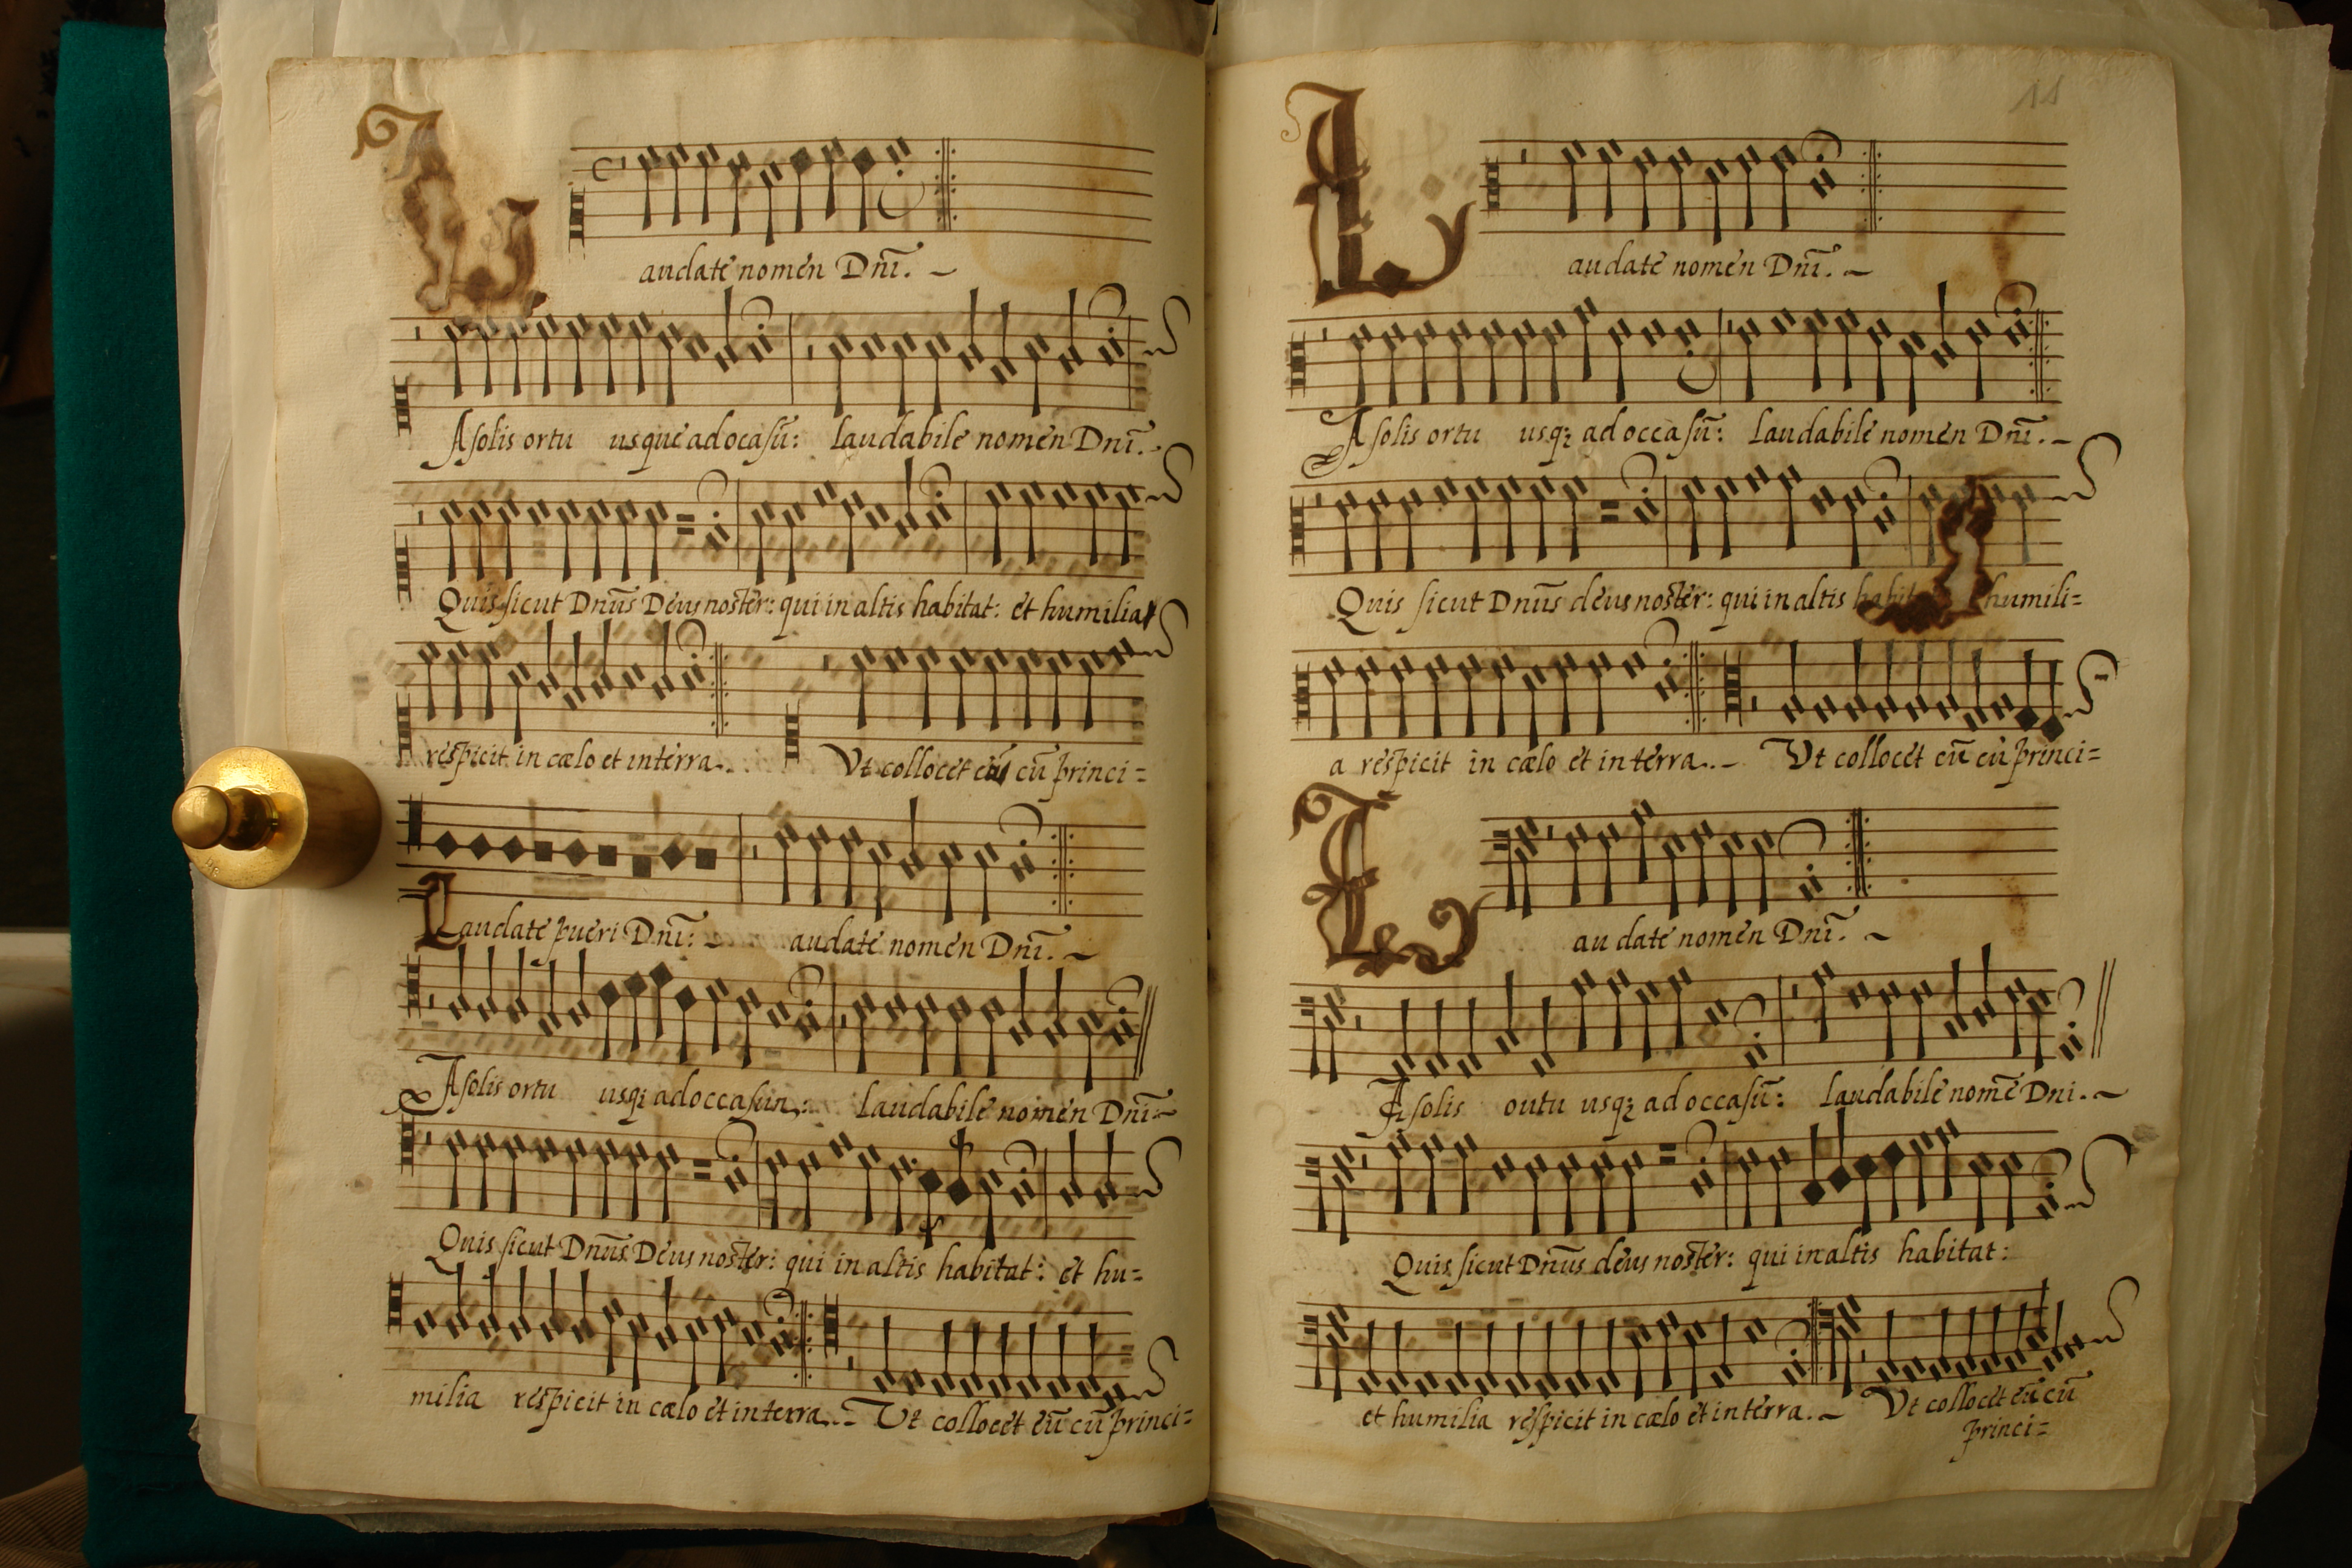 Laudate nomen Dnī.
A solis ortu usque ad ocasū: laudabile nomen Dnī.
Quis sicut Dnūs Deus noster: qui in altis habitat: et humilia
respicit in cælo et in terra. Vt collocet cū princi=
Laudate pueri Dnī: audate nomen Dnī.
A solis ortu usqȝ ad occasun: laudabile nomen Dnī
Quis sicut Dnūs Deus noster: qui in altis habitat: et hu=
milia respicit in cælo et in terra. Vt collocet eū cū princi=
11
Laudate nomen Dnī.
A solis ortu usqȝ ad occasū: laudabile nomen Dnī.
Quis sicut Dnūs deus noster: qui in altis humili=
a respicit in cælo et in terra. Vt collocet eū cū princi=
Laudate nomen Dnī.
A solis outu usqȝ ad occasū: laudabile nomē Dni.
Quis sicut Dnūs deus noster: qui in altis habitat:
et humilia respicit in cælo et in terra. Vt collocet eū cū
princi=